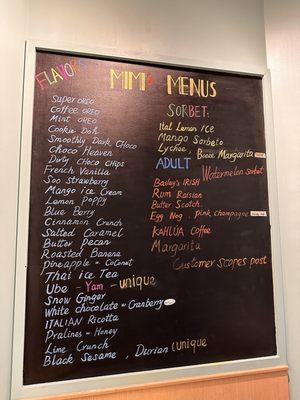 FLAVORS
MIMI'S MENUS
Super OREO
Coffee OREO
Mint OREO
Cookie Doh
Smoothly Dark Choco
Choco Heaven
Dirty Choco Chips
French Vanilla
Soo Strawberry
Mango Ice Cream
Lemon Poppy
Blue Berry
Cinnamon Crunch
Salted Caramel
Butter Pecan
Roasted Banana
Pineapple = Coconut
Thai ice Tea
Ube - Yam - unique
Snow Ginger
White chocolate = Cranberry
ITALIAN Ricotta
Pralines = Honey
Lime Crunch
Black Sesame, Durian (unique
SORBET:
Ital Lemon ICE
Mango Sorbeto
Lychee, Booze Margarita
Watermelon Sorbet
ADULT
Bailey's IRISH
Rum Raisian
Butter Scotch
Egg Nog, Pink champagne
KAHLUA Coffee
Margarita
Customer scopes post